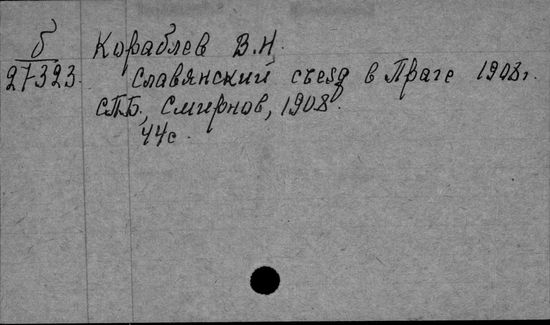 б Кораблев В.Н.
27323. Славянский съезд в Праге 1908г.
СПБ., Смирнов, 1908.
44с.